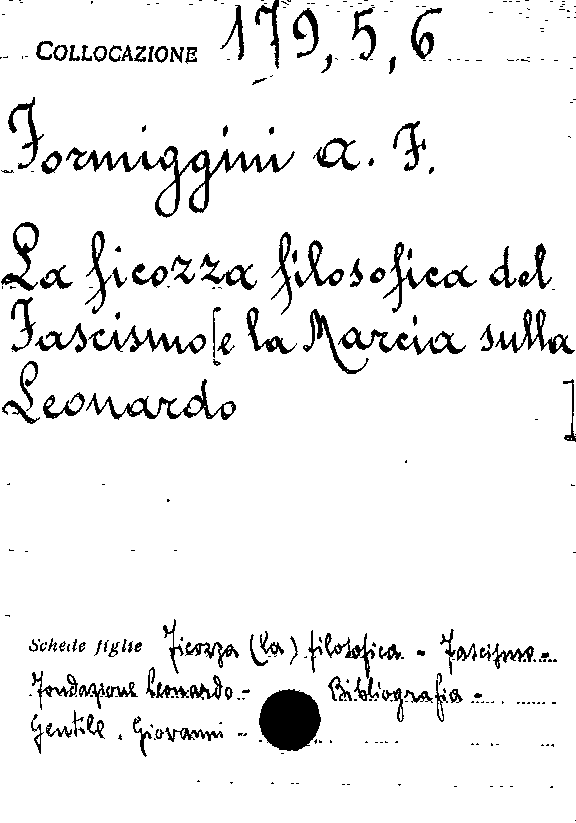 COLLOCAZIONE 179, 5, 6
Formiggini A. F.
La ficozza filosofica del
Fascismo [e la Marcia sulla
Leonardo ]
Schede figlie Ficozza (la) filosofica - Fascismo -
Fondazione Leonardo - Bibliografia -
Gentile, Giovanni -